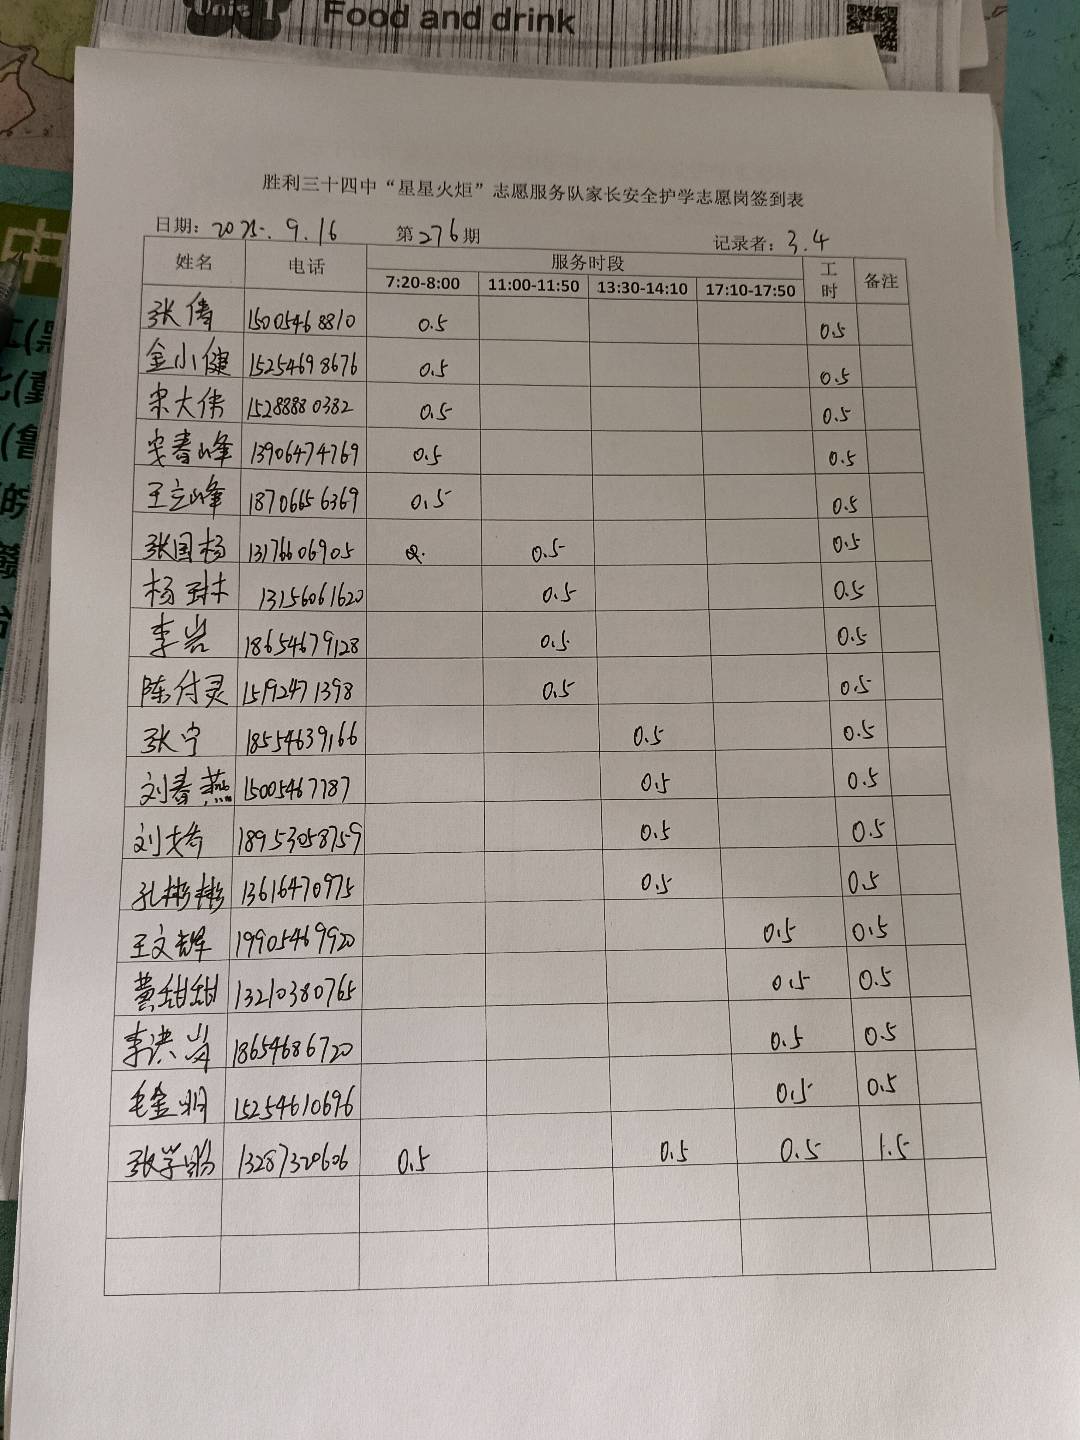 Unit 1 Food and drink
胜利三十四中“星星火炬”志愿服务队家长安全护学志愿岗签到表
日期：2025.9.16 第276期 记录者：3.4
姓名 电话 服务时段 工时 备注
7:20-8:00 11:00-11:50 13:30-14:10 17:10-17:50
张倩 15005468810 0.5 0.5
金小健 15254698676 0.5 0.5
宋大伟 15288880382 0.5 0.5
安春峰 13906474769 0.5 0.5
王立峰 18706656369 0.5 0.5
张国杨 13176606905 0.5 0.5
杨琳 13156061620 0.5 0.5
李岩 18654679128 0.5 0.5
陈付灵 15192471398 0.5 0.5
张宁 18554639166 0.5 0.5
刘春燕 15005467787 0.5 0.5
刘婷 18953058759 0.5 0.5
孔彬彬 13616470975 0.5 0.5
王文辉 19905469920 0.5 0.5
黄甜甜 13210380765 0.5 0.5
李洪岗 18654686720 0.5 0.5
毛金明 15254610696 0.5 0.5
张学鹏 13287320606 0.5 0.5 0.5 1.5